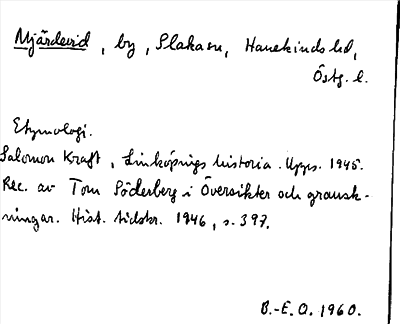 Mjärdevid, by, Slakasn, Hanekinds hd,
Östg. l.
Etymologi.
Salomon Kraft, Linköpings historia. Upps. 1945.
Rec. av Tom Söderberg i Översikter och gransk-
ningar. Hist. tidskr. 1946, s. 397.
B.-E. O. 1960.